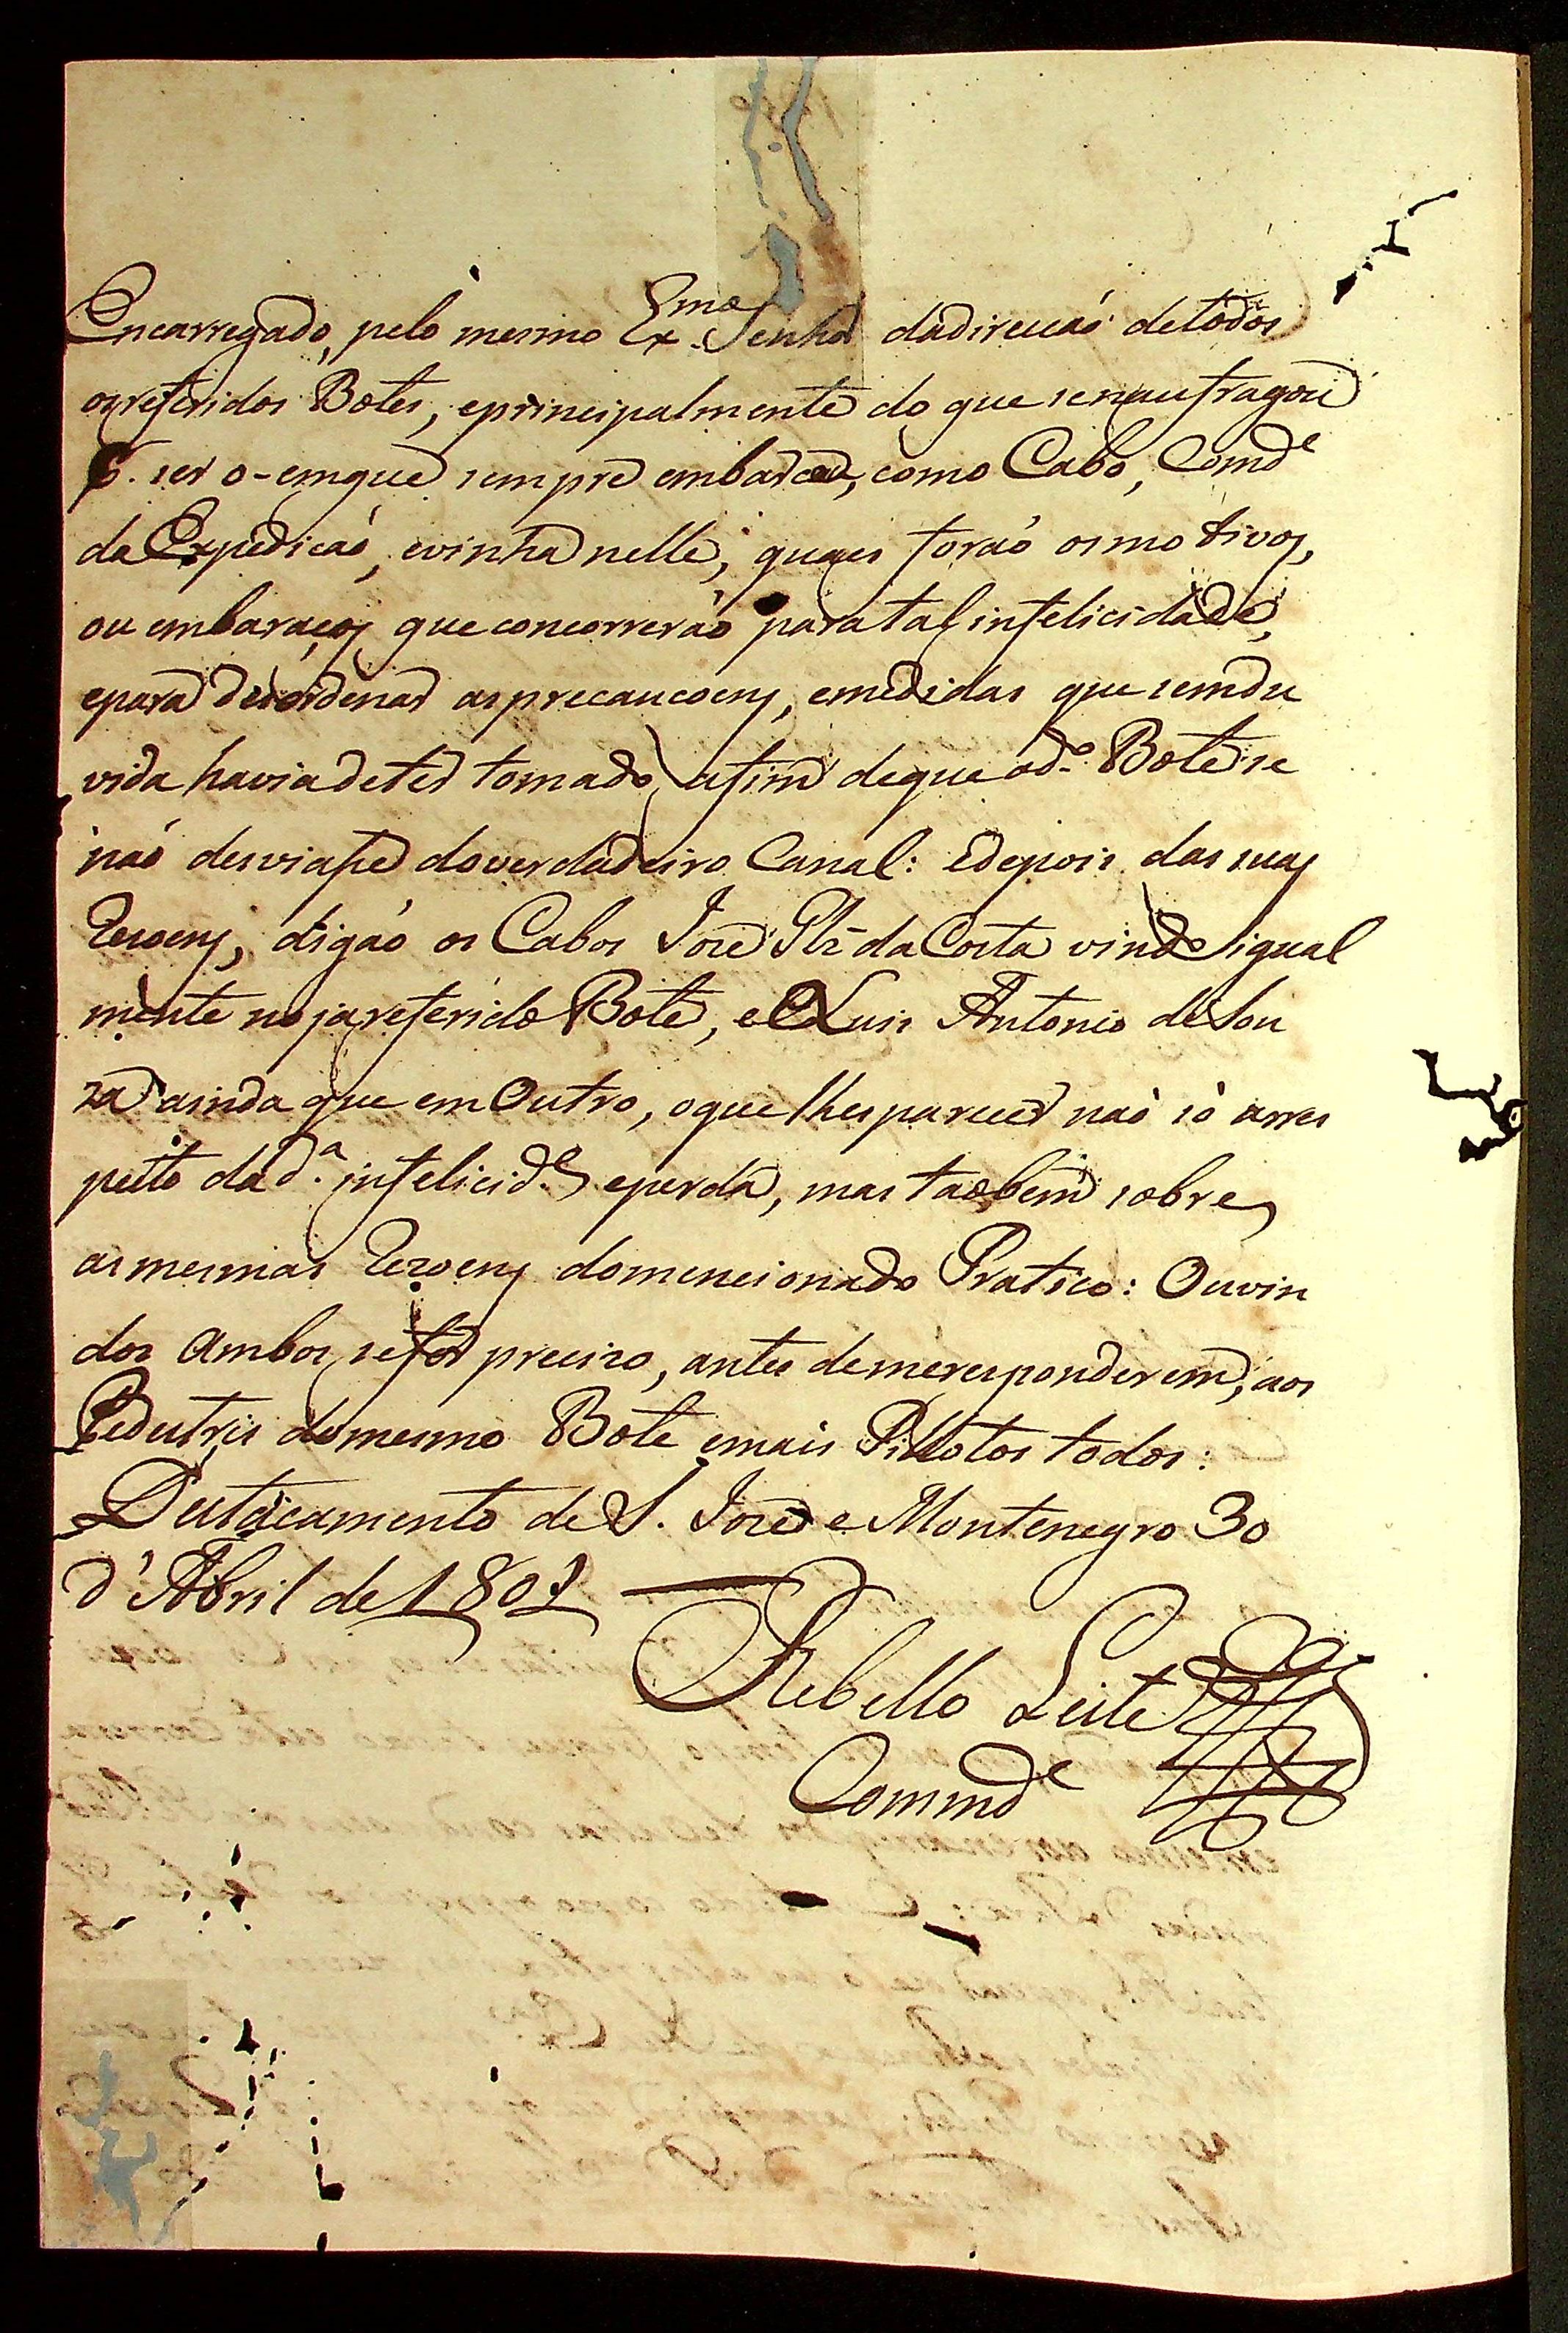 Encarregado, pelo mesmo Exmo Senhor dadirecçaó detodos
osreferidos Botes, eprincipalmente do que senaufragou
P. ser o-emque sempre embarcou, como Cabo, Comde
da Expediçaó, evinha nelle; quaes foraó osmotivos,
ou embaraços que concorreraó paratal infelicidade,
epara desordenar asprecauçoens, emedidas que semdu
vida haviadeter tomado afim deque od.o Bote se
naó desviasse doverdadeiro Canal: Edepois das suas
Rezoens, digaó os Cabos José Piz da Costa vindo igual
mente no jareferido Bote, e Luis Antonio deSou
za ainda que em Outro, oque lhesparecer naó só arres
peito dad.a infelicid.e eperda, mas taobem sobre
asmesmas Rezoens domencionado Pratico: Ouvin
dos Ambos, sefor preciso, antes demeresponderem, aos
Pedestres domesmo Bote emais Pillotos todos:
Destacamento de S. José e Montenegro 30
d'Abril de 1801
Rebello Leite
Commde